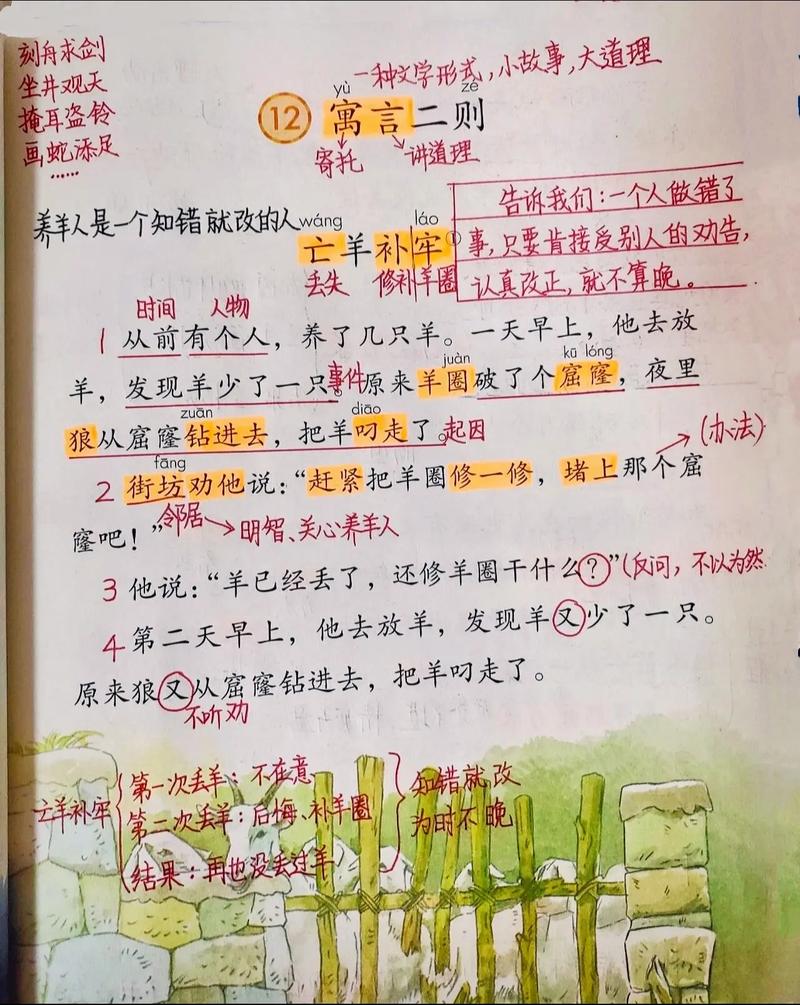 刻舟求剑
坐井观天
掩耳盗铃
画蛇添足
……
一种文学形式，小故事，大道理
yù zé
12 寓言二则
寄托 讲道理
养羊人是一个知错就改的人
wáng láo
亡羊补牢①
丢失 修补羊圈
告诉我们：一个人做错了
事，只要肯接受别人的劝告，
认真改正，就不算晚。
时间 人物
1 从前有个人，养了几只羊。一天早上，他去放
juàn kū lóng
羊，发现羊少了一只。事件 原来羊圈破了个窟窿，夜里
zuān diāo
狼从窟窿钻进去，把羊叼走了。起因
fāng
(办法)
2 街坊劝他说：“赶紧把羊圈修一修，堵上那个窟
窿吧！”
邻居 明智、关心养羊人
3 他说：“羊已经丢了，还修羊圈干什么？”(反问，不以为然
4 第二天早上，他去放羊，发现羊又少了一只。
原来狼又从窟窿钻进去，把羊叼走了。
不听劝
亡羊补牢
第一次丢羊：不在意
第二次丢羊：后悔、补羊圈
结果：再也没丢过羊
知错就改
为时不晚